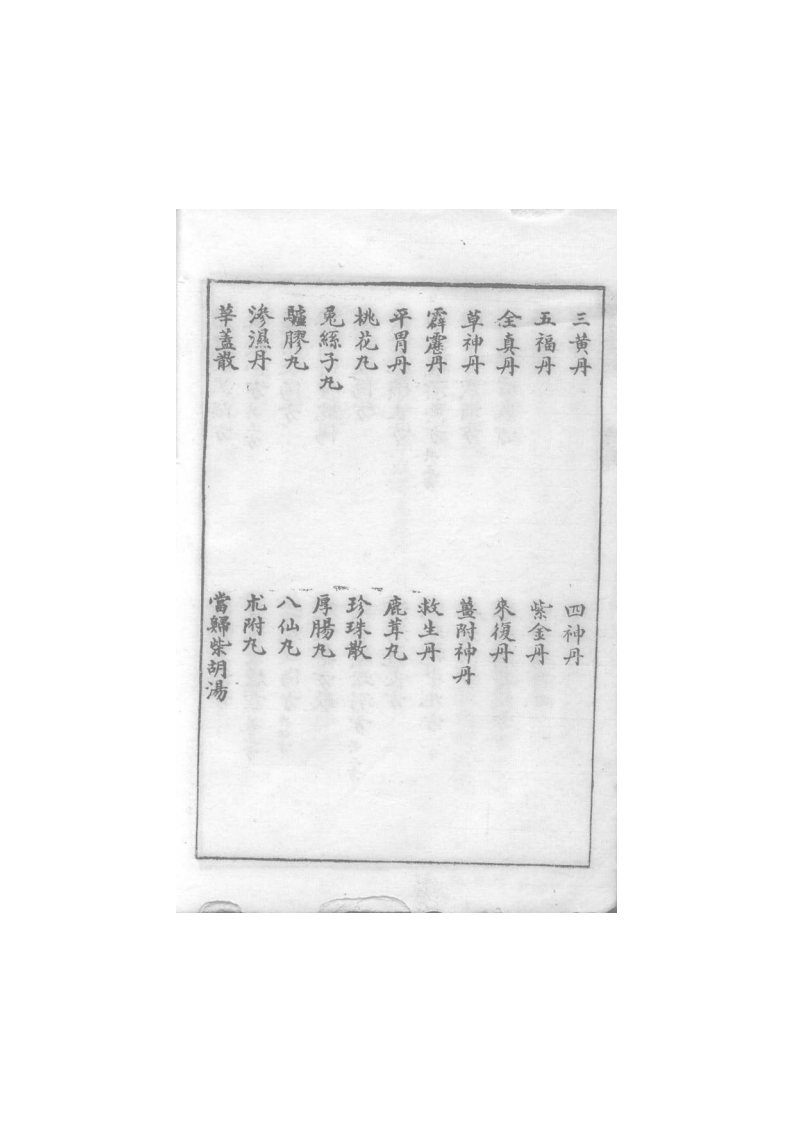 三黄丹 四神丹
五福丹 紫金丹
全真丹 來復丹
草神丹 薑附神丹
霹靂丹 救生丹
平胃丹 鹿茸丸
桃花丸 珍珠散
兎絲子丸 厚腸丸
驢膠丸 八仙丸
滲濕丹 朮附丸
華蓋散 當歸柴胡湯